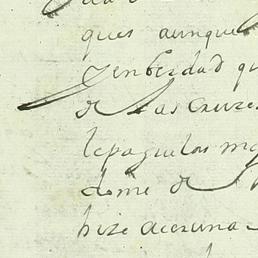 ques aunque
y enberdad qu
de las cruze
le pague los m
dome de
hize acer una